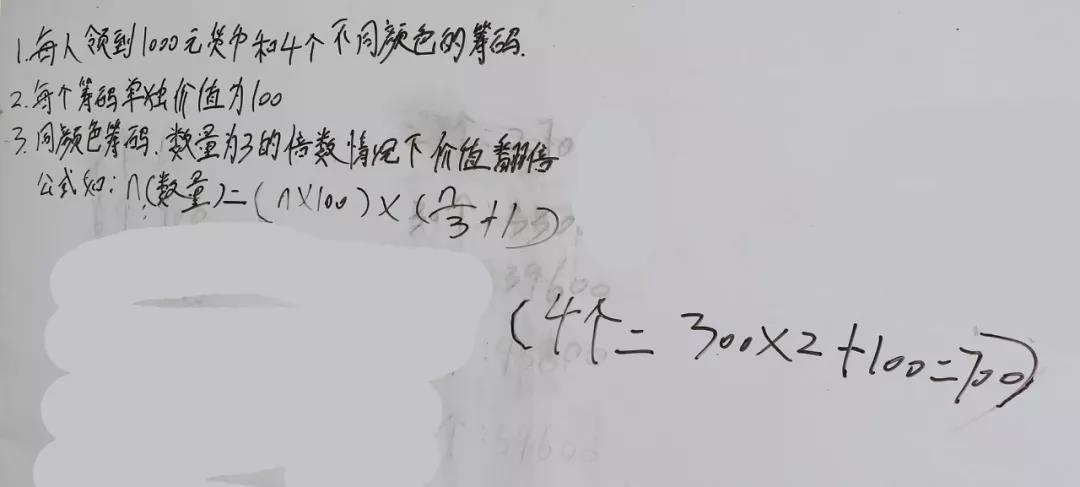 1.每人领到1000元货币和4个不同颜色的筹码.
2.每个筹码单独价值为100
3.同颜色筹码.数量为3的倍数情况下价值翻倍
公式如:n(数量)=(n×100)×(n/3+1)
(4个=300×2+100=700)
39600
59600